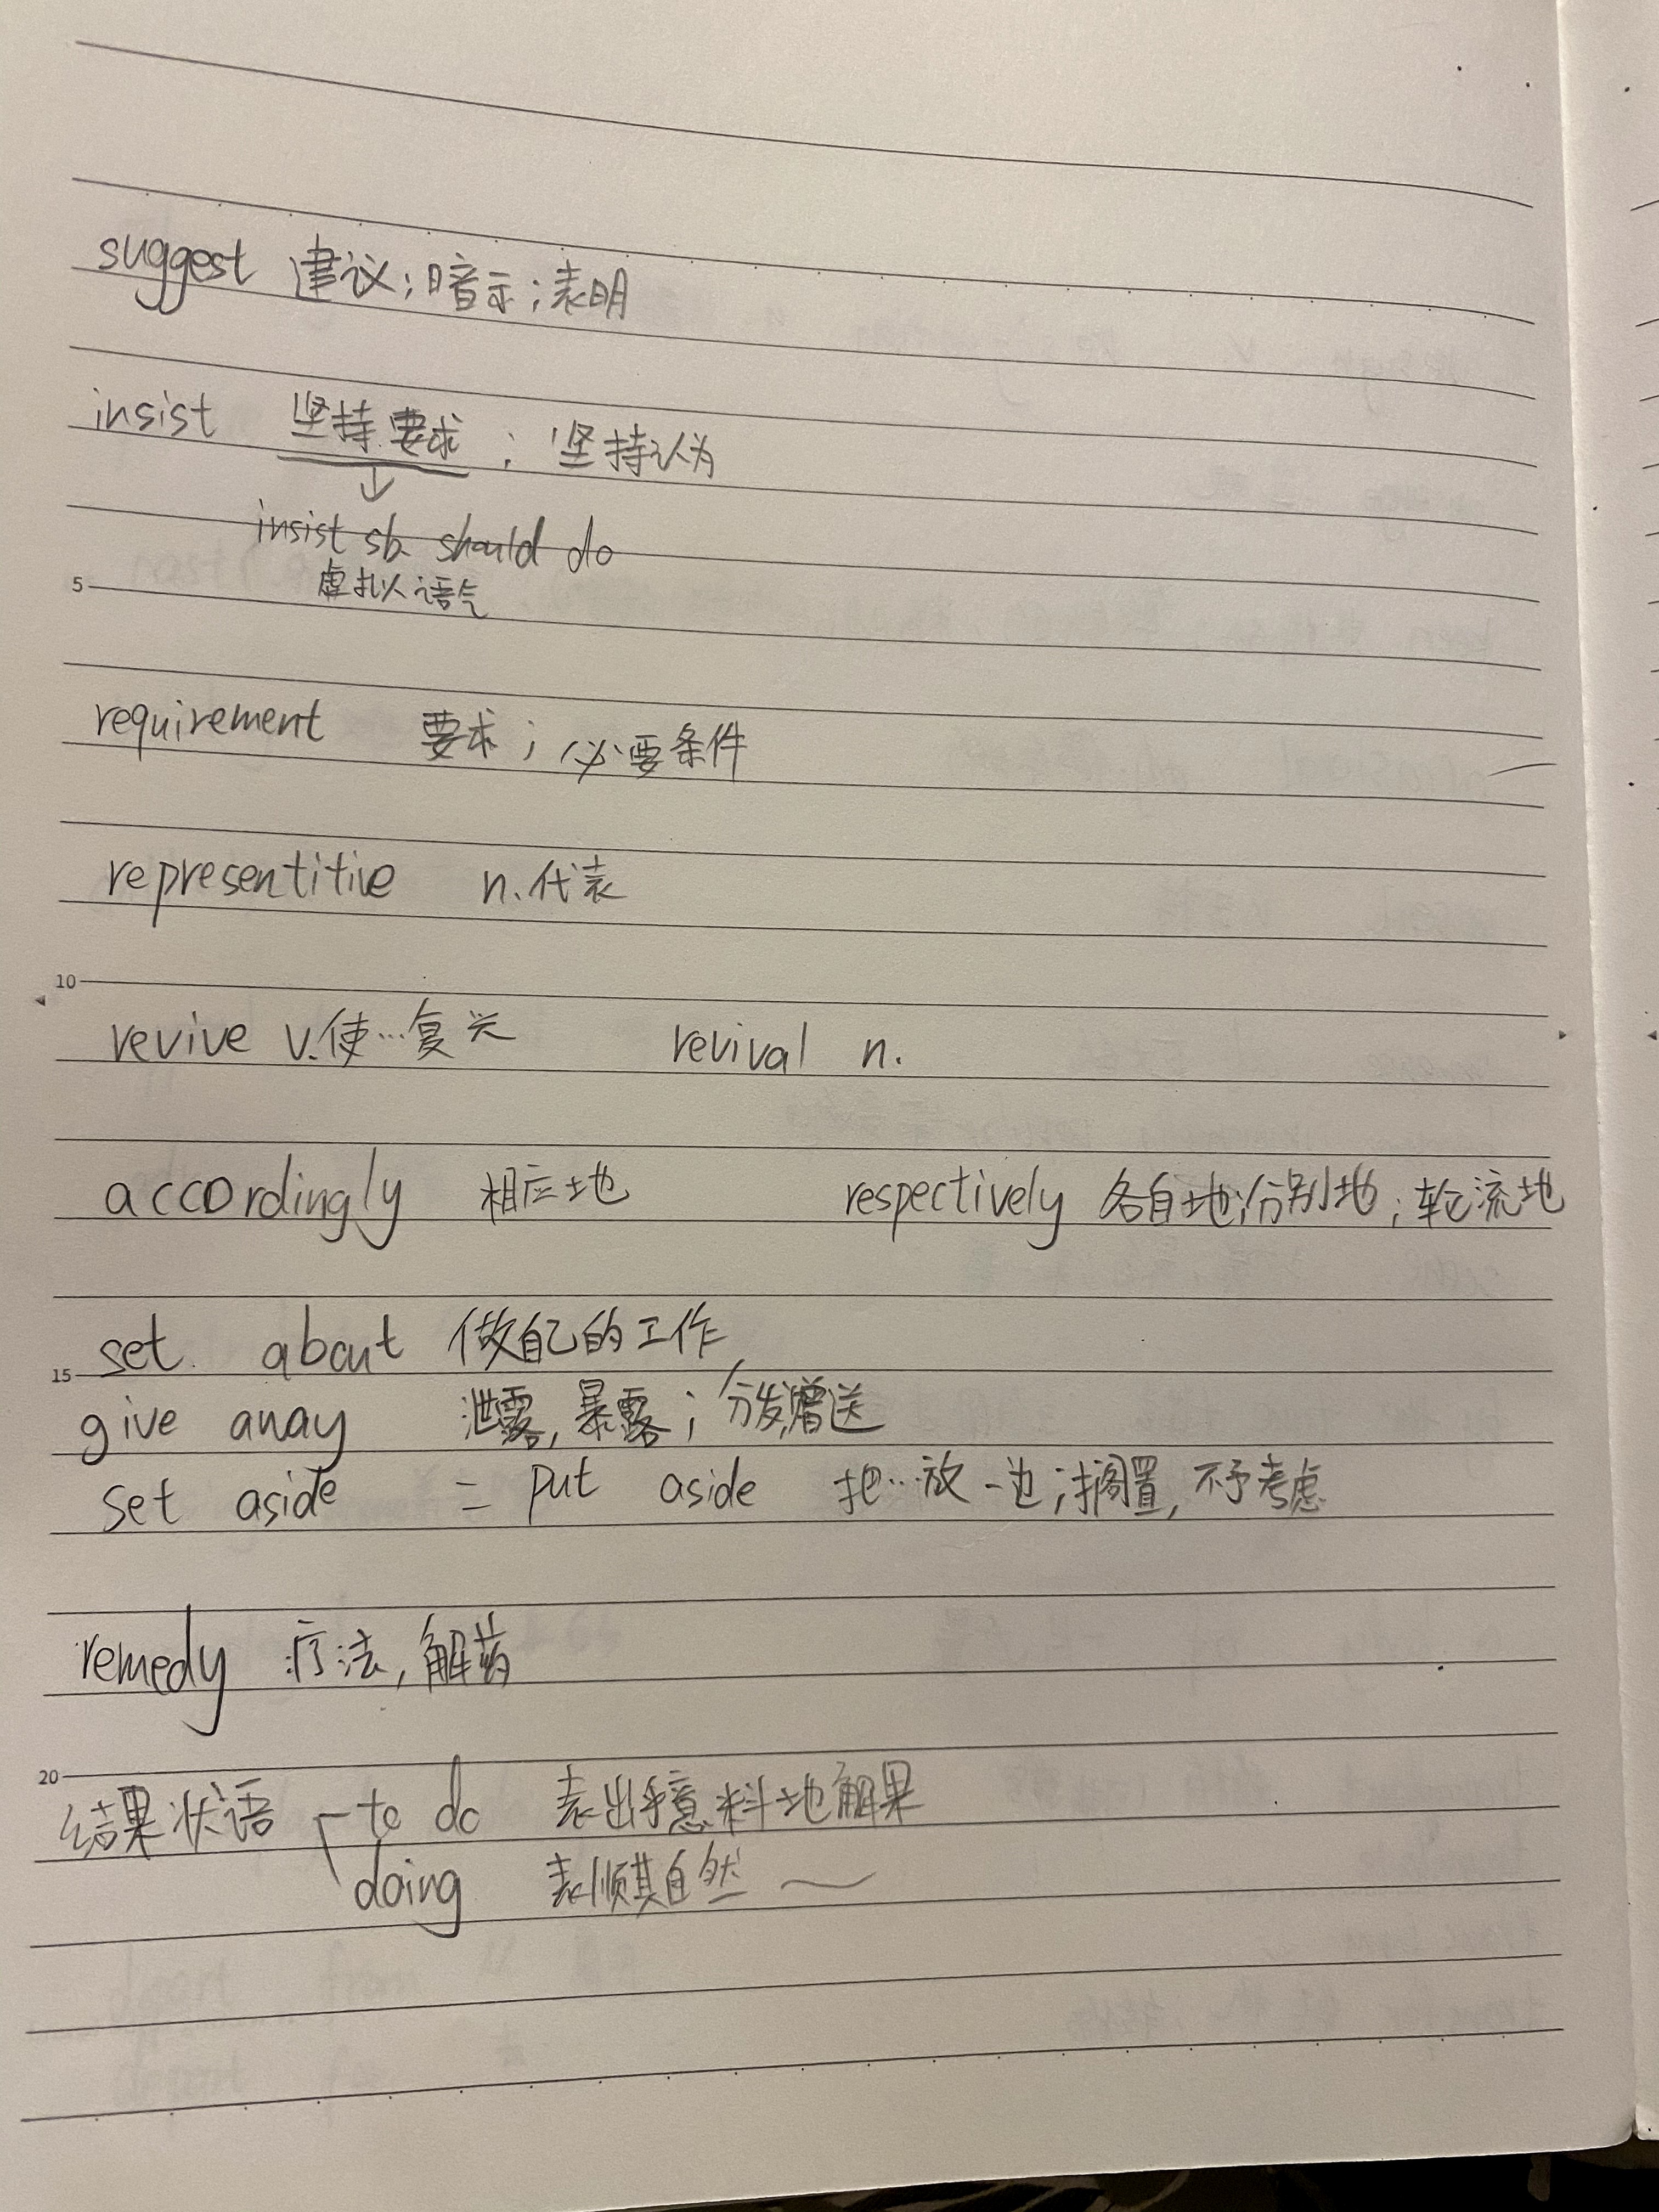 suggest 建议；暗示；表明
insist 坚持要求；坚持认为
insist sb should do
虚拟语气
5
requirement 要求；必要条件
representitive n.代表
revive v.使…复兴 revival n.
10
accordingly 相应地 respectively 各自地，分别地；轮流地
set about 做自己的工作
15
give away 泄露，暴露；分发赠送
set aside = put aside 把…放一边；搁置，不予考虑
remedy 疗法，解药
20
结果状语 to do 表出乎意料地结果
doing 表顺其自然～